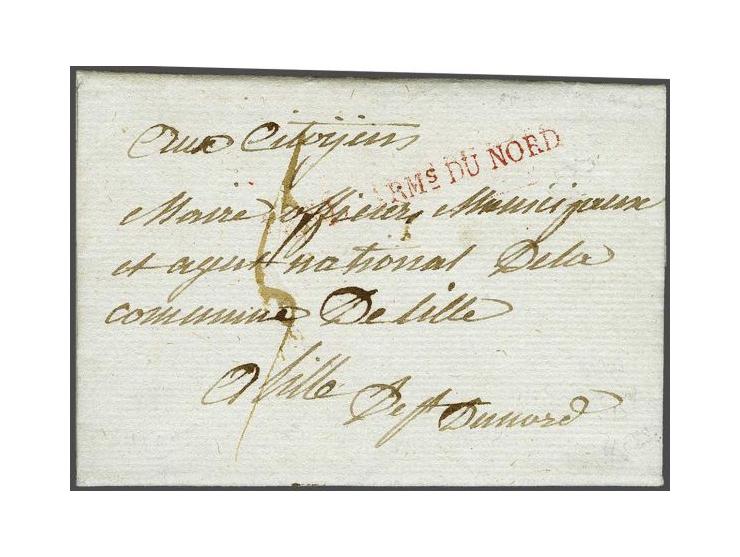 Aux Citoyens
ARMs DU NORD
Maire officiers Municipaux
et agent national Dela
commune De Lille
A Lille
Dept Dunord